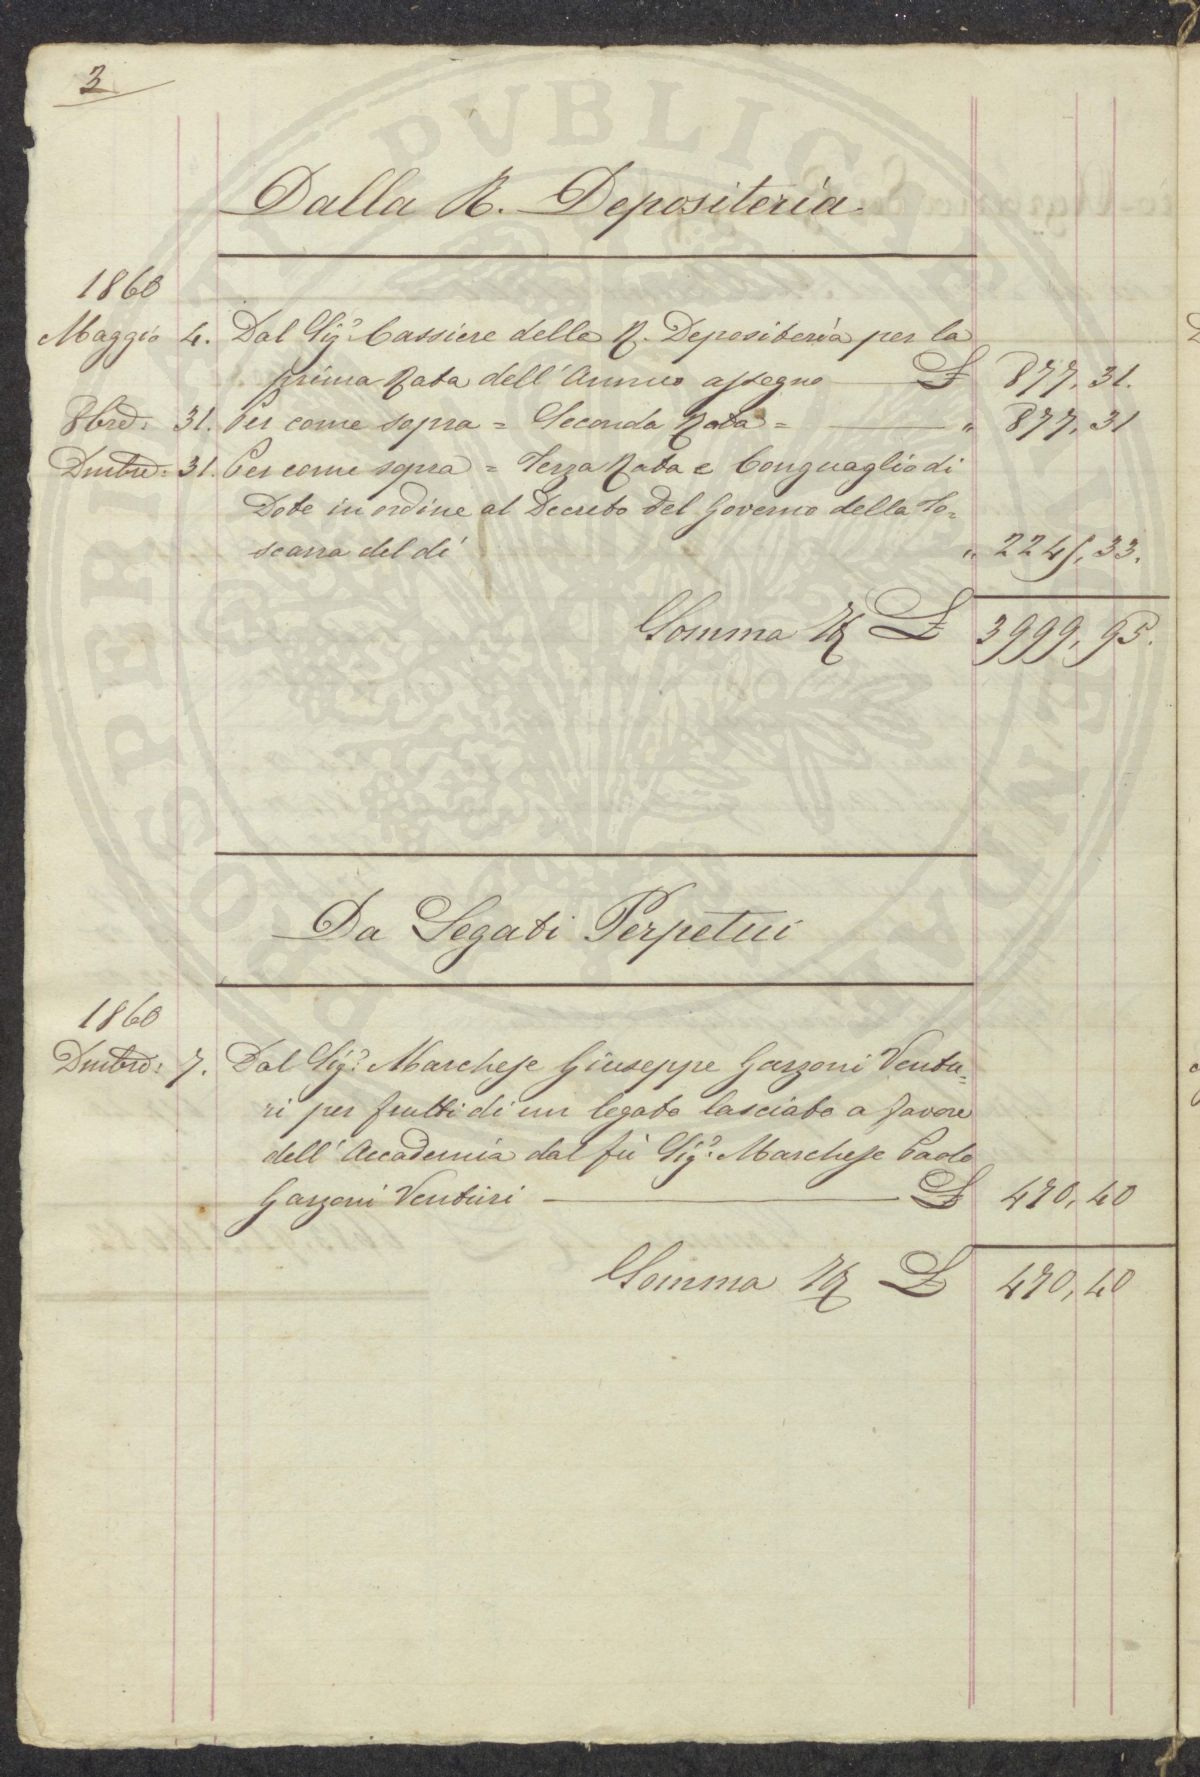 3
Dalla R. Depositeria.
1860
Maggio 4. Dal Sig.r Cassiere della R. Depositeria per la
prima Rata dell'Annuo assegno £ 877,31.
8bre: 31. Per come sopra = Seconda Rata = " 877,31
Dmbre: 31. Per come sopra = Terza Rata e Conguaglio di
Dote in ordine al Decreto del Governo della To=
scana del dì " 2245,33.
Somma £ 3999,95.
Da Legati Perpetui
1860
Dmbre: 7. Dal Sig.r Marchese Giuseppe Garzoni Ventu=
ri per frutti di un legato lasciato a favore
dell'Accademia dal fù Sig.r Marchese Paolo
Garzoni Venturi £ 470,40
Somma £ 470,40